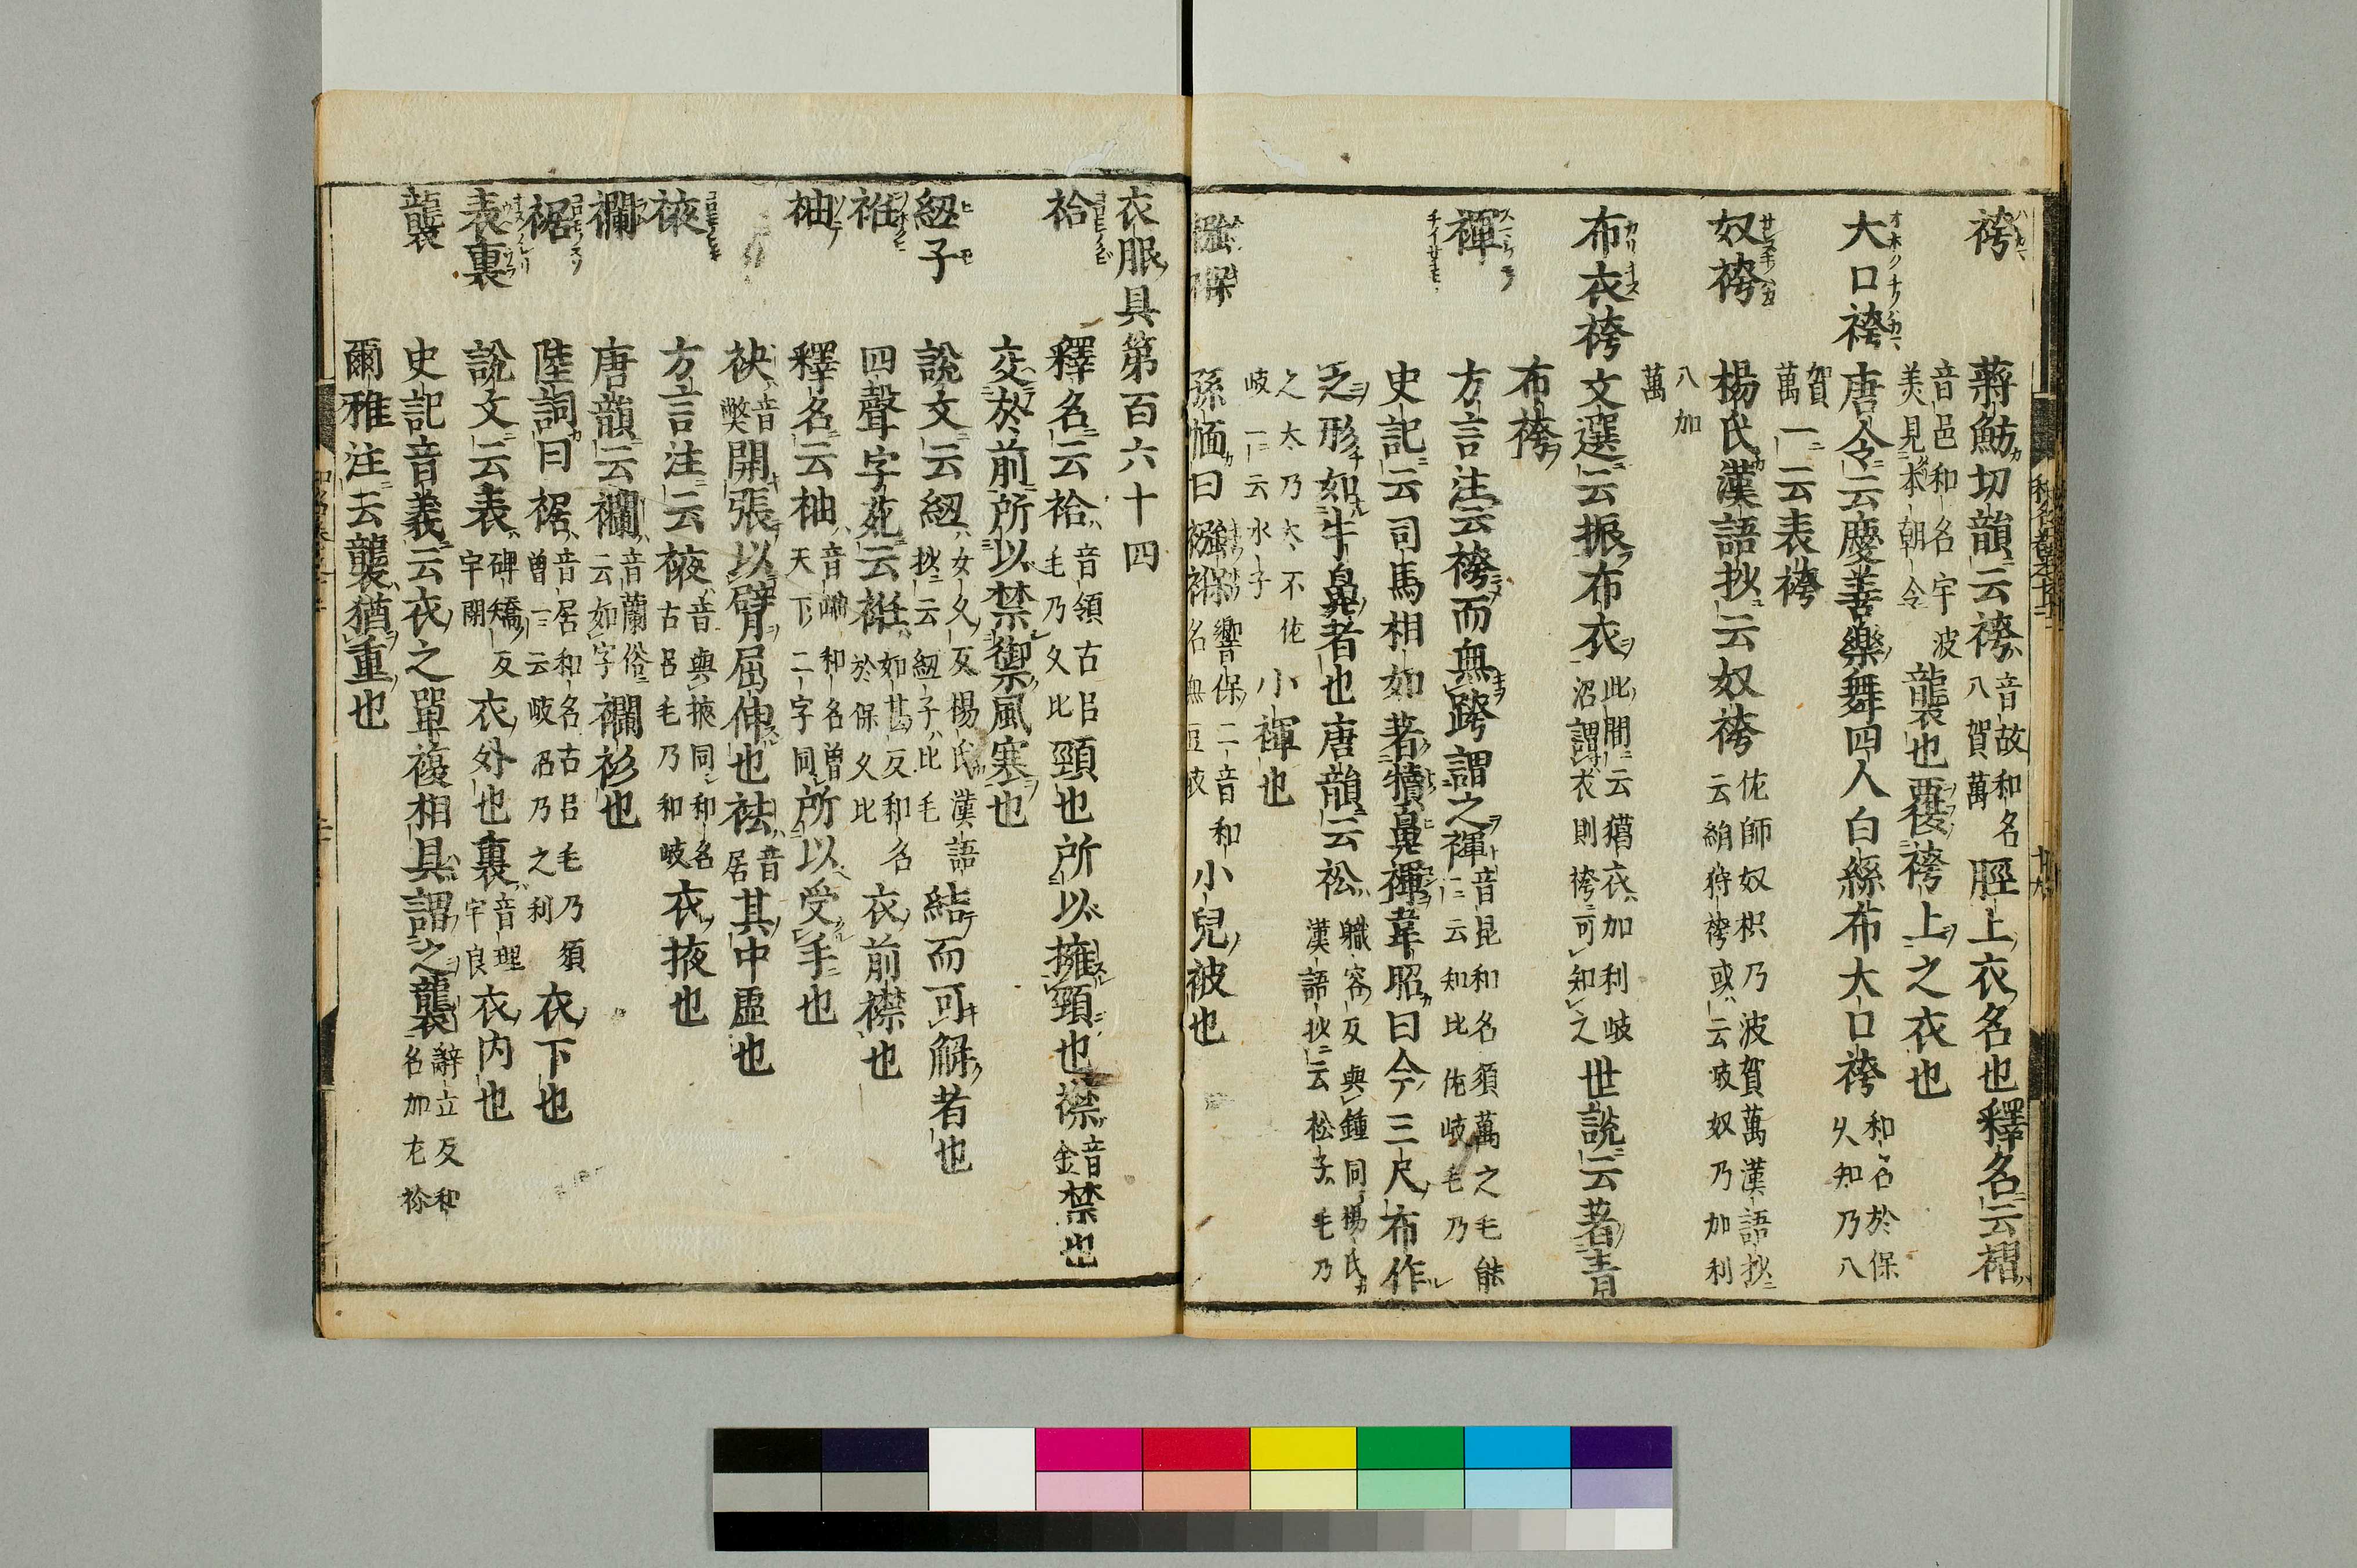 袴 蔣魴切韻云袴音故和名八賀萬脛上衣名也釋名云褶
音邑和名宇波美見本朝令襲也覆袴上之衣也
大口袴 唐令云慶善樂舞四人白絲布大口袴和名於保久知乃八
賀萬一云表袴
奴袴 楊氏漢語抄云奴袴佐師奴枳乃波賀萬漢語抄云絹狩袴或云岐奴乃加利
八加萬
布衣袴 文選云振布衣此間云獦衣加利岐沼謂衣則袴可知之世說云著青
布袴
褌 方言注云袴而無跨謂之褌音昆和名須萬之毛能一云知比佐岐毛乃
史記云司馬相如著犢鼻褌韋昭曰今三尺布作
之形如牛鼻者也唐韻云衳軄容反與鍾同楊氏漢語抄云松子毛乃
之太乃太不佐岐一云水子小褌也
襁褓 孫愐曰襁褓響保二音和名無豆岐小兒被也
衣服具第百六十四
袷 釋名云袷音領古呂毛乃久比頸也所以擁頸也襟音金禁也
交於前所以禁禦風寒也
紐子 說文云紐女久反楊氏漢語抄云紐子比毛結而可解者也
衽 四聲字苑云衽如甚反和名於保久比衣前襟也
袖 釋名云袖音岫和名曾天下二字同所以受手也
袂音弊開張以臂屈伸也袪音居其中虛也
𧙃 方言注云𧙃音與掖同和名古呂毛乃和岐衣掖也
襴 唐韻云襴音蘭俗云如字襴衫也
裾 陸詞曰裾音居和名古呂毛乃須曾一云岐沼乃之利衣下也
表裏 說文云表碑矯反宇閇衣外也裏音理宇良衣内也
襲 史記音義云衣之單複相具謂之襲辭立反和名加左祢
爾雅注云襲猶重也